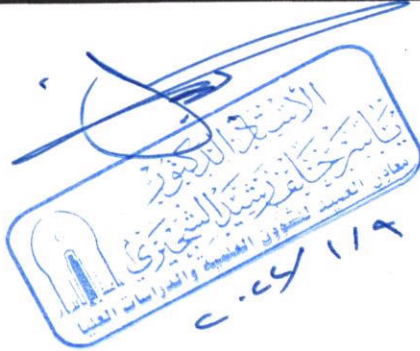 الأستاذ الدكتور
ياسر خلف رشيد الشجيري
معاون العميد للشؤون العلمية والدراسات العليا
٢٠٢٤/١/٩